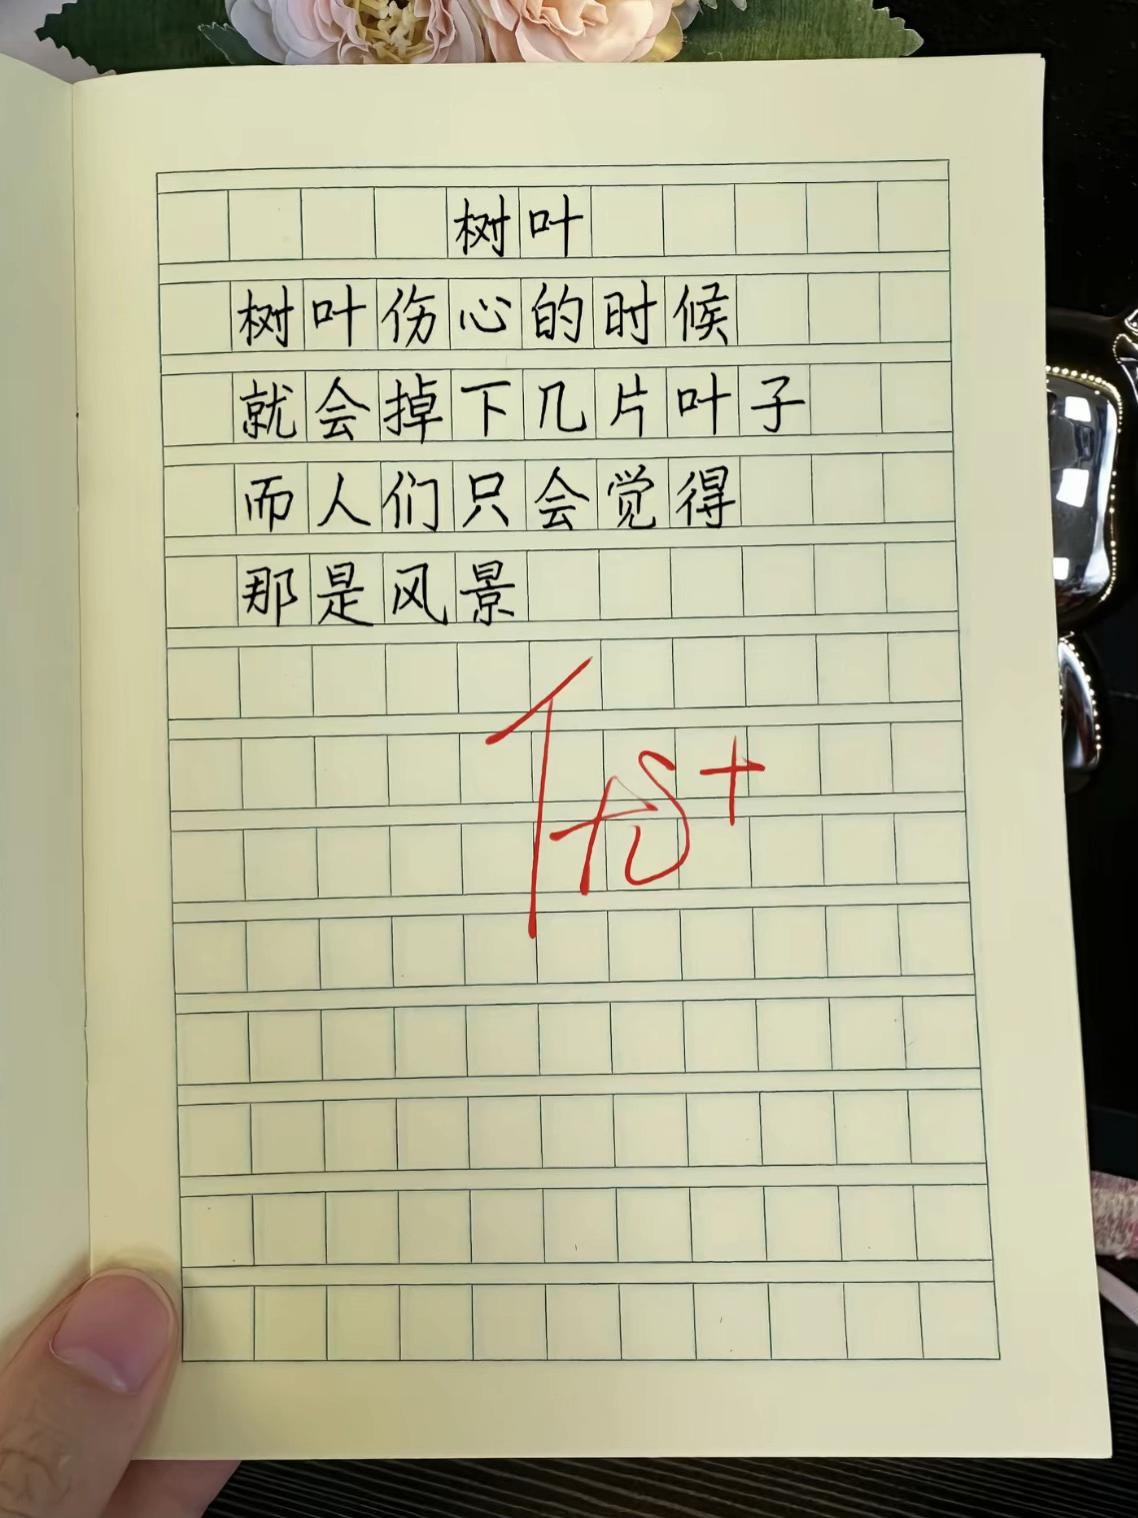 树叶
树叶伤心的时候
就会掉下几片叶子
而人们只会觉得
那是风景
优+